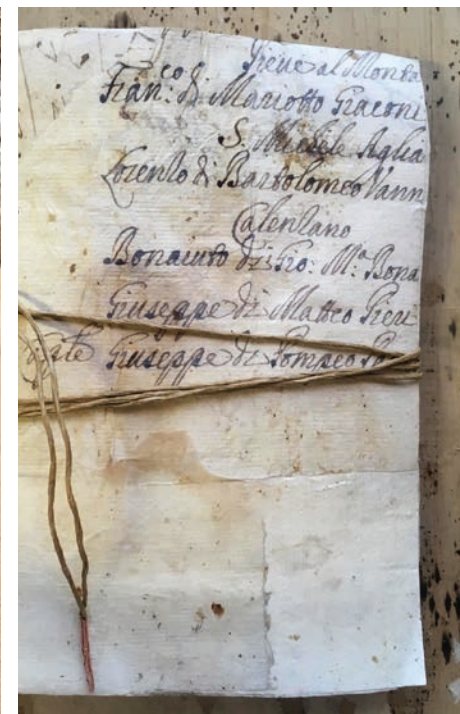 Pieve al Monta
Fran:co di Mariotto Giaconi
S. Michele Aglia
Lorenzo di Bartolomeo Vann
Calenzano
Bonaiuto di Gio: M.a Bona
Giuseppe di Matteo Pieri
Giuseppe di Pompeo